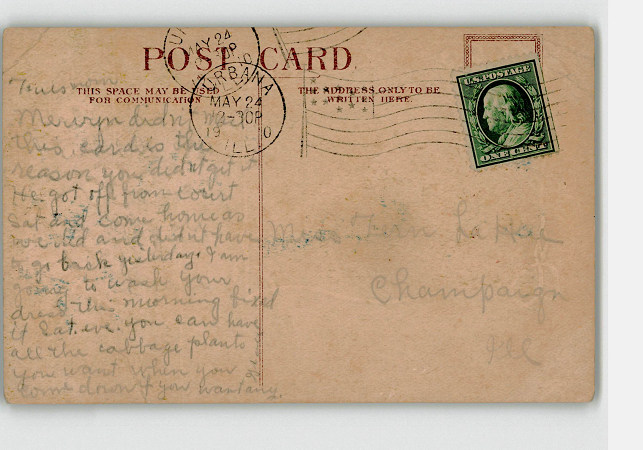 POST CARD
THIS SPACE MAY BE USED
FOR COMMUNICATION
THE ADDRESS ONLY TO BE
WRITTEN HERE.
MAY 24
URBANA
MAY 24
30P
19 0
ILL
U.S. POSTAGE
ONE CENT
Mervyn didn't
this card is the
reason you didn't get it
He got off from court
Sat and come home as
we did and didn't have
to go back yesterday. I am
going to wash your
dress this morning fixed
it Sat. eve. you can have
all the cabbage plants
you want when you
come down if you want any.
Miss Fern La Hae
Champaign
Ill